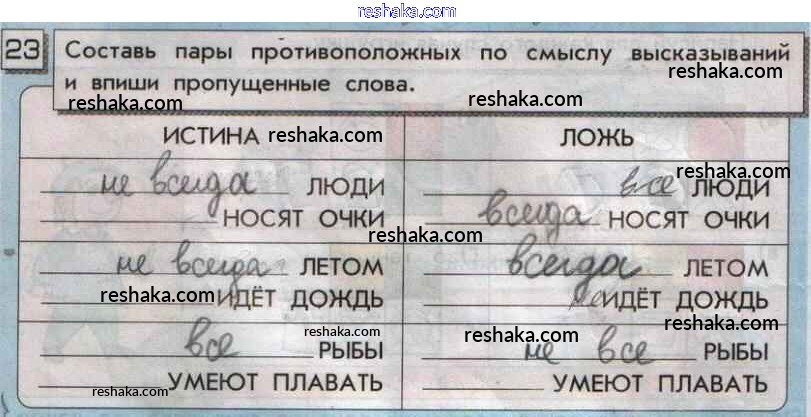 reshaka.com
23 Составь пары противоположных по смыслу высказываний
reshaka.com
и впиши пропущенные слова.
reshaka.com reshaka.com
ИСТИНА reshaka.com ЛОЖЬ
reshaka.com
не всегда ЛЮДИ все ЛЮДИ
НОСЯТ ОЧКИ всегда НОСЯТ ОЧКИ
reshaka.com
не всегда ЛЕТОМ всегда ЛЕТОМ
reshaka.com ИДЁТ ДОЖДЬ не ИДЁТ ДОЖДЬ
reshaka.com reshaka.com reshaka.com
все РЫБЫ не все РЫБЫ
reshaka.com
УМЕЮТ ПЛАВАТЬ УМЕЮТ ПЛАВАТЬ